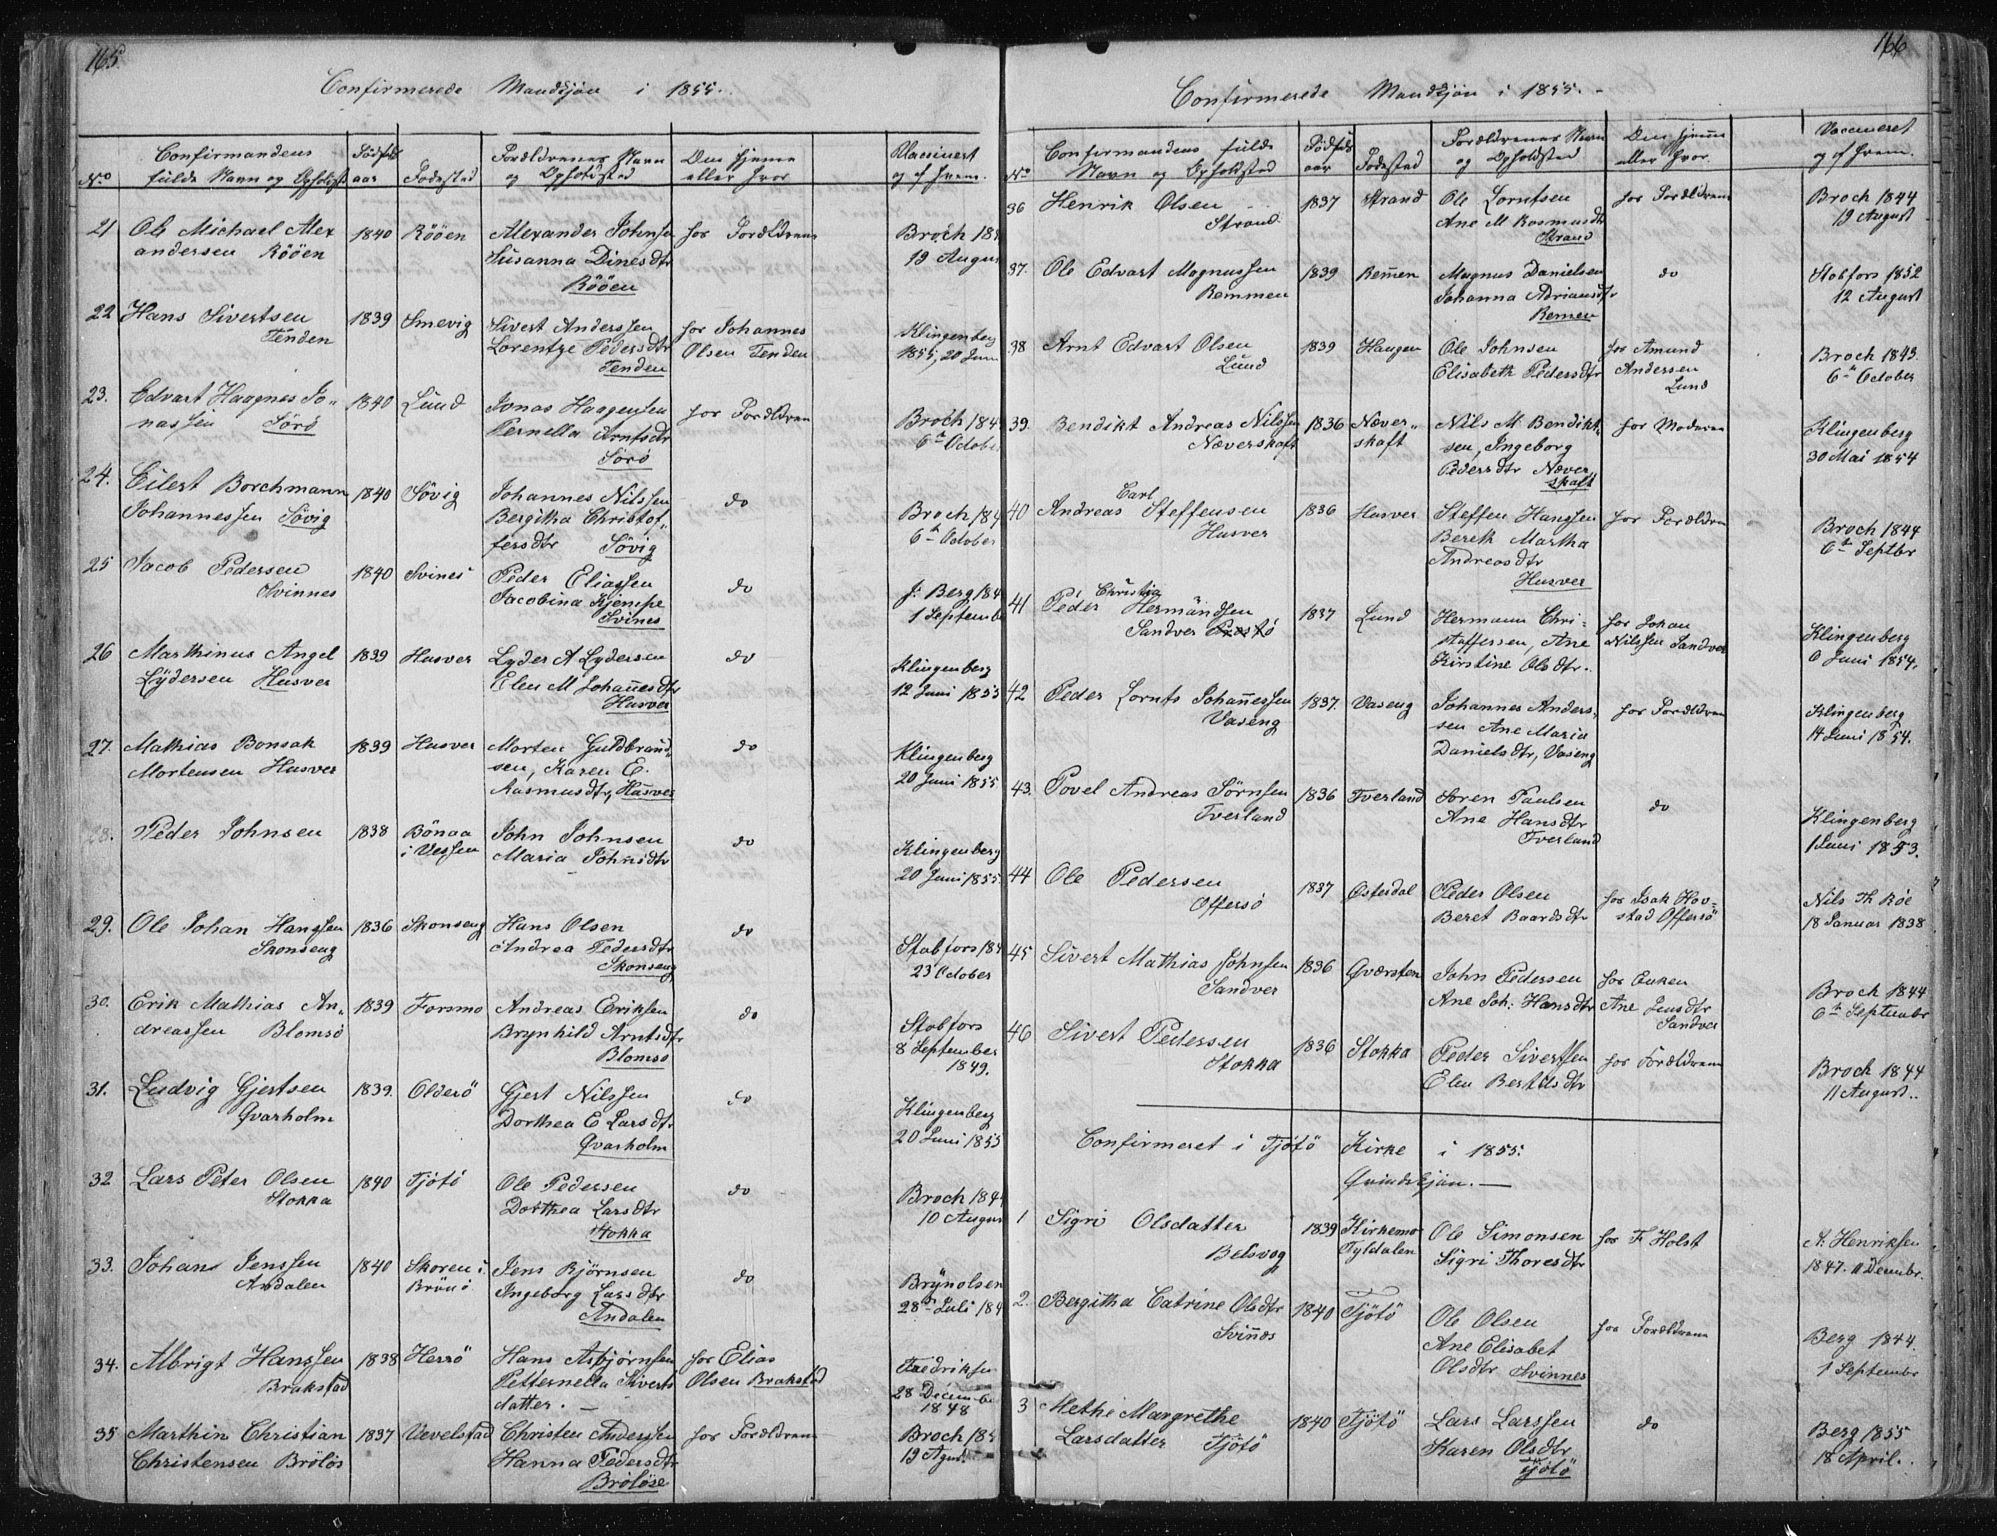 165.
Confirmerede Mandkjøn i 1855.
No Confirmandens fulde Navn og Opholdsst Fødsels aar Fødested Forældrenes Navn og Opholdsted Om hjemme eller hvor Vaccineret og af hvem.
21 Ole Michael Alex 1840 Rööen Alexander Johnsen hos Forældrene Broch 184
andersen Rööen Susanna Dinesdtr 19 Augus
Rööen
22 Hans Sivertsen 1839 Smevig Sivert Anderssen hos Johannes Klingenberg
Tenden Lorentze Pedersdtr Olsen Tenden 1855, 20 Juni
Tenden
23. Edvart Haagnes Jo- 1840 Lund Jonas Haagensen hos Forældrene Broch 184
nassen Sörö Pernella Arntsdtr 6te October
Sörö
24. Eilert Borchmann 1840 Sövig Johannes Nilssen do Broch 184
Johannessen Sövig Bergitha Christof- 6te October
fersdtr Sövig
25 Jacob Pedersen 1840 Svines Peder Eliassen do J. Berg 184
Svinnes Jacobina Kjempe 1 Septembe
Svines
26 Marthinus Angel 1839 Husver Lyder A Lydersen do Klingenberg
Lydersen Husver Elen M Johannesdtr 12 Juni 1855
Husver
27. Mathias Bonsak 1839 Husver Morten Guldbrand- do Klingenberg
Mortensen Husver sen, Karen E. 20 Juni 1855
Rasmusdtr, Husver
28. Peder Johnsen 1838 Bönaa John Johnsen do Klingenberg
i Vessen Maria Johnsdtr 20 Juni 1855
29. Ole Johan Hanssen 1836 Skonseng Hans Olsen do Stabfors 184
Skonseng Andrea Pedersdtr 23 October
Skonseng
30. Erik Mathias An- 1839 Forsmo Andreas Eriksen do Stabfors
dreassen Blomsö Brynhild Arntsdtr 8 September
Blomsö 1849.
31. Ludvig Gjertsen 1839. Olderö Gjert Nilssen do Klingenberg
Qvarholm Dorthea E Larsdtr 20 Juni 1855
Qvarholm
32 Lars Peter Olsen 1840 Tjötö Ole Pedersen do Broch 184
Stokka Dorthea Larsdtr 10 Augus
Stokka
33. Johan Jenssen 1840 Skoren i Jens Bjørnsen do Brynolsen
Andalen Brönö Ingeborg Larsdtr 28de Juli 184
Andalen
34. Albrigt Hanssen 1838 Herrö Hans Asbjørnsen hos Elias Fredriksen
Brakstad Petternella Siverts Olsen Brakstad 28 Decembe
datter. 1848
35 Marthin Christian 1837 Vevelstad Christen Anderssen hos Forældrene Broch 184
Christensen Brölös Hanna Pedersdtr 19 Agus
Brölöse
166
Confirmerede Mandkjøn i 1855.
No Confirmandens fulde Navn og Opholdsted Fødsels aar Fødested Forældrenes Navn og Opholdsted Om hjemme eller hvor. Vaccineret og af hvem.
36 Henrik Olsen 1837 Strand Ole Lorntsen hos Forældrene Broch 1844
Strand Ane M Rasmusdtr 19 August
Strand
37. Ole Edvart Magnussen 1839 Remmen Magnus Danielsen do Stabfors 1852
Remmen Johanna Adriansdtr 12 August
Remen
38 Arnt Edvart Olsen 1839 Haugen Ole Johnsen hos Amund Broch 1843.
Lund Elisabeth Pedersdtr Andersen 6te October
Lund
39. Bendikt Andreas Nilssen 1836 Næver- Nils M Bendikt- hos Moderen Klingenberg
Næverskaft skaft sen, Ingeborg 30 Mai 1854
Pedersdtr Næver
skaft
40 Andreas Carl Steffensen 1836 Husver Steffen Hanssen hos Forældrene Broch 1844
Husver Bereth Martha 6te Septbr
Andreasdtr
Husver
41 Peder Christia Hermandsen 1837 Lund Hermann Chri- hos Johan Klingenberg
Sandver stoffersen, Ane Nilssen Sandver 6 Juni 1854.
Kirstine Olsdtr.
42 Peder Lornts Johannessen 1837. Vaseng Johannes Anders- hos Forældrene Klingenberg
Vaseng sen Ane Maria 14 Juni 1854.
Danielsdtr, Vaseng
43. Povel Andreas Sörnsen 1836 Tverland Soren Paulsen do Klingenberg
Tverland Ane Hansdtr 1 Juni 1853.
Tverland
44 Ole Pedersen 1837 Østerdal Peder Olsen hos Isak Hov- Nils Th Röe
Offersö Beret Baardsdtr stad Offersö 18 Januar 1838
45 Sivert Mathias Johnsen 1836 Qværsten John Pedersen hos Enken Broch 1844
Sandver Ane Joh: Hansdtr Ane Jensdtr 6te Septembr
Sandver
46 Sivert Pedersen 1836 Stokka Peder Sivertsen hos Forældrene Broch 1844
Stokka Elen Bertelsdtr 11 August.
Confirmeret i Tjötö Kirke i 1855:
Qvindekjön.
1 Sigri Olsdatter 1839 Kirkemo Ole Simonsen hos F Holst A. Henriksen
Belsvog Tyldalen Sigri Thoresdtr 1847. 11 Decembr.
2. Bergitha Catrine Olsdtr 1840 Tjötö Ole Olsen hos Forældrene Berg 1844.
Svinnes Ane Elisabet 1 Septembr
Olsdtr Svinnes
3 Methe Margrethe 1840 Tjötö Lars Larssen do Berg 1855
Larsdatter Tjötö Karen Olsdtr 18 April.
Tjötö